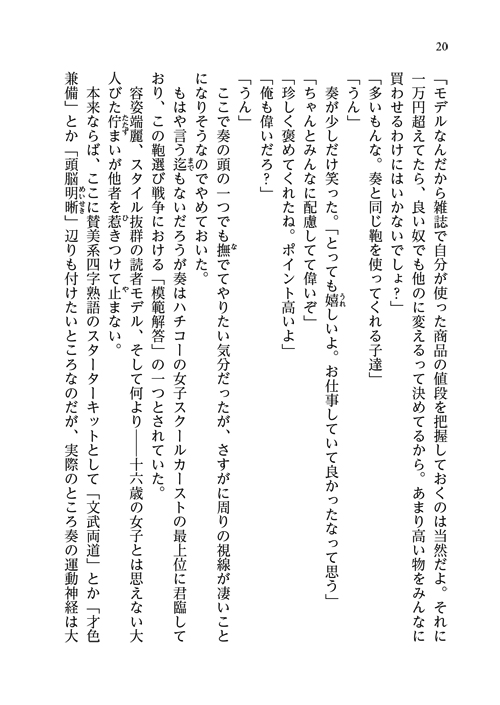 20
「モデルなんだから雑誌で自分が使った商品の値段を把握しておくのは当然だよ。それに
一万円超えてたら、良い奴でも他のに変えるって決めてるから。あまり高い物をみんなに
買わせるわけにはいかないでしょ？」
「多いもんな。奏と同じ鞄を使ってくれる子達」
「うん」
奏が少しだけ笑った。「とっても嬉しいよ。お仕事していて良かったなって思う」
「ちゃんとみんなに配慮してて偉いぞ」
「珍しく褒めてくれたね。ポイント高いよ」
「俺も偉いだろ？」
「うん」
ここで奏の頭の一つでも撫でてやりたい気分だったが、さすがに周りの視線が凄いこと
になりそうなのでやめておいた。
もはや言う迄もないだろうが奏はハチコーの女子スクールカーストの最上位に君臨して
おり、この鞄選び戦争における「模範解答」の一つとされていた。
容姿端麗、スタイル抜群の読者モデル、そして何より――十六歳の女子とは思えない大
人びた佇まいが他者を惹きつけて止まない。
本来ならば、ここに賛美系四字熟語のスターターキットとして「文武両道」とか「才色
兼備」とか「頭脳明晰」辺りも付けたいところなのだが、実際のところ奏の運動神経は大